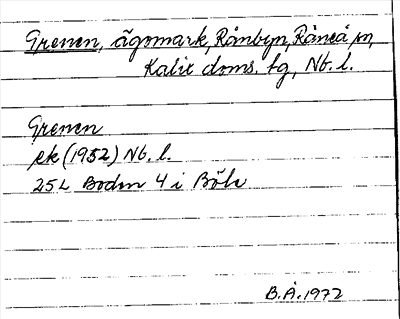 Grenen, ägomark, Rånbyn, Råneå sn,
Kalix doms. tg, Nb. l.
Grenen
ek (1952) Nb. l.
25L Boden 4 i Böle
B.Å. 1972